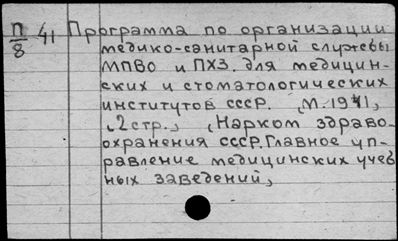 П/8 41 Программа по организации
медико-санитарной службы
МПВО и ПХЗ. для медицин-
ских и стоматологических
институтов СССР. [М. 1941]
[2стр.] [Нарком здраво-
охранения СССР. Главное уп-
равление медицинских учеб
ных заведений]